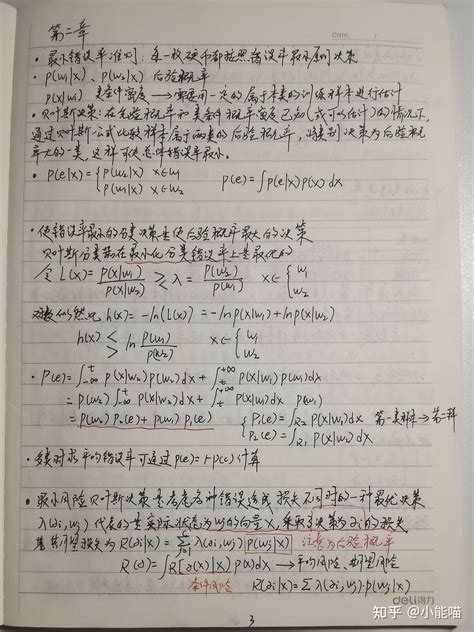 第二章
Date.
· 最小错误率准则：每一枚硬币都按照错误率最小原则决策
· P(w₁|x)、P(w₂|x) 后验概率
P(x|w) 类条件密度 → 需要用一定的属于本类的训练样本进行估计
· 贝叶斯决策：在先验概率和类条件概率密度已知(或可以估计)的情况下，
通过贝叶斯公式比较样本属于两类的后验概率，将类别决策为后验概
率大的一类，这样可使总体错误率最小。
· P(e|x)={P(w₂|x) x∈w₁ P(e)=∫P(e|x)P(x)dx
P(w₁|x) x∈w₂
· 使错误率最小的分类决策是使后验概率最大的决策
贝叶斯分类器在最小化分类错误率上是最优的
令 L(x)=P(x|w₁)/P(x|w₂) ≷ λ=P(w₂)/P(w₁) x∈{w₁ w₂
对数似然比 h(x)=-ln(L(x))=-lnp(x|w₁)+lnp(x|w₂)
h(x) ≶ ln P(w₁)/P(w₂) x∈{w₁ w₂
· P(e)=∫P(x|w₂)P(w₂)dx+∫P(x|w₁)P(w₁)dx
=P(w₂)∫P(x|w₂)dx+∫P(x|w₁)dx P(w₁)
=P(w₂)P₂(e)+P(w₁)P₁(e) {P₁(e)=∫R₂ P(x|w₁)dx 第一类 → 第二类
P₂(e)=∫R₁ P(x|w₂)dx
· 多类时 平均错误率可通过P(e)=1-P(c)计算
· 最小风险贝叶斯决策是考虑各种错误造成损失不同时的一种最优决策
λ(αi,wj) 代表的是实际状态为wj的向量x，采取了决策为αi的损失
期望损失为R(αi|x)=Σλ(αi,wj)P(wj|x) 注意为后验概率
R(α)=∫R(α(x)|x)P(x)dx → 平均风险、期望风险
条件风险 R(αi|x)=Σλ(αi,wj)·P(wj|x)
deli得力
3
知乎 @小能喵